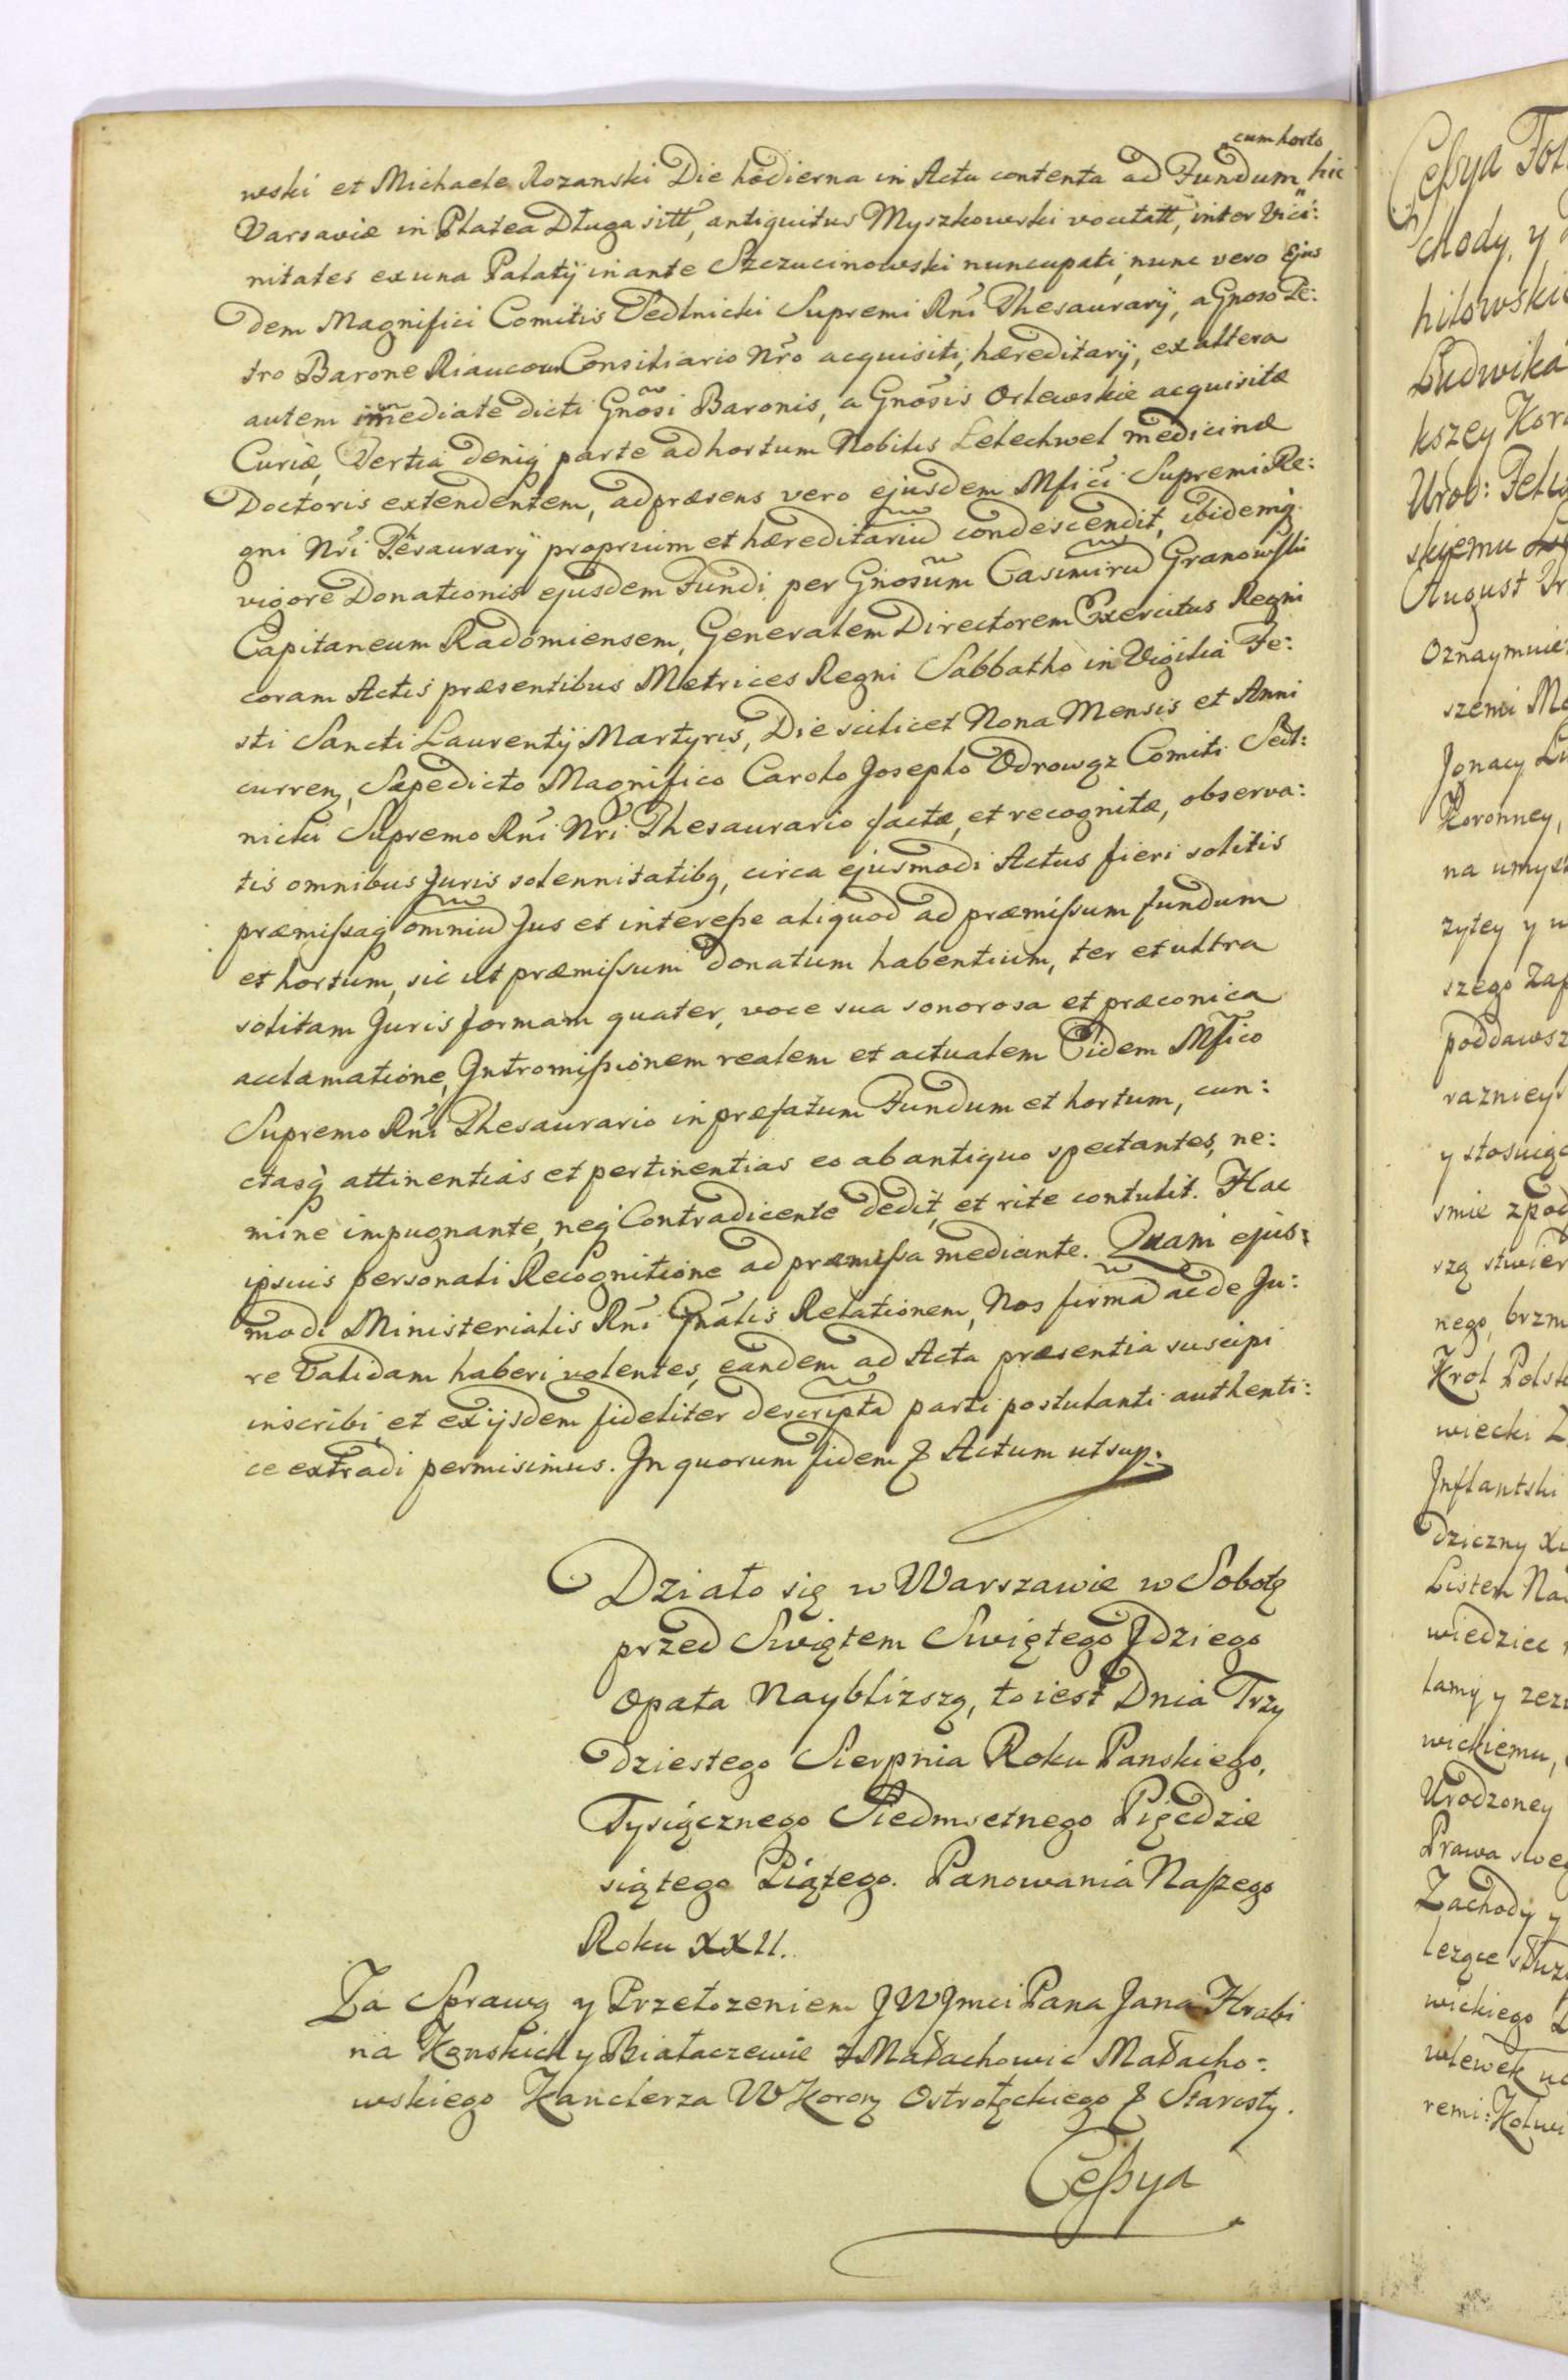 cum horto
wski et Michaele Rozanski Die hodierna in Actu contenta ad Fundum hic
Varsaviæ in Platea Długa sitt, antiquitus Myszkowski vocitatt, inter Vici:
nitates ex una Palatÿ in ante Szczucinowski nuncupati, nunc vero Ejus
dem Magnifici Comitis Sedlnicki Supremi Rnĩ Thesaurarÿ, a Gnoso Pe:
tro Barone Riaucour Consiliario Nrõ acquisiti, hæreditarÿ, ex altera
autem im̃ediate dicti Gnõsi Baronis, a Gnõsis Orlewskie acquisitæ
Curiæ, Tertia deniq parte ad hortum Nobilis Lelechwel medicinæ
Doctoris extendentem, ad præsens vero ejusdem Mfici Supremi Re:
gni Nrĩ Thesaurarÿ proprium et hæreditariũ condescendit, ibidemq
vigore Donationis ejusdem Fundi per Gnosũm Casimirũ Granowski
Capitaneum Radomiensem, Generalem Directorem Exercitus Regni
coram Actis præsentibus Metrices Regni Sabbatho in Vigilia Fe:
sti Sancti Laurentÿ Martyris, Die scilicet Nona Mensis et Anni
curren, Sæpedicto Magnifico Carolo Josepho Odrowąz Comiti Sedl:
nicki Supremo Rnĩ Nrĩ Thesaurario factæ, et recognitæ, observa:
tis omnibus Juris solennitatibq, circa ejusmodi Actus fieri solitis
præmissaq omniũ Jus et interesse aliquod ad præmissum fundum
et hortum, sic ut præmissum donatum habentium, ter et ultra
solitam Juris formam quater, voce sua sonorosa et præconica
acclamatione, Intromissionem realem et actualem Eidem Mfico
Supremo Rnĩ Thesaurario in præfatum Fundum et hortum, cun:
ctasq attinentias et pertinentias eo ab antiquo spectantes, ne:
mine impugnante, neq Contradicente dedit, et rite contulit. Hac
ipsius personali Recognitione ad præmissa mediante. Quam ejus:
modi Ministerialis Rnĩ Gnãlis Relationem, Nos firmã ac de Ju:
re Validam haberi volentes, eandem ad Acta præsentia suscipi
inscribi et ex ijsdem fideliter descriptã parti postulanti authenti:
ce extradi permisimus. In quorum fidem & Actum ut sup:
Działo się w Warszawie w Sobotę
przed Swiętem Swiętego Jdziego
Opata Nayblizszą, to iest Dnia Trzy
dziestego Sierpnia Roku Panskiego,
Tysiącznego Siedmsetnego Pięcdzie
siątego Piątego. Panowania Naszego
Roku XXII.
Za Sprawą y Przełozeniem JWJmci Pana Jana Hrabi
na Konskich y Białaczewie z Małachowic Małacho:
wskiego Kanclerza W Korony Ostrołęckiego & Starosty.
Cessya
Cessya
chody, y
hilowski
Ludwika
kszey Koro
Urod: Felic
skiemu
August
Oznaymuie
szemi
Jgnacy
Koronney,
na umysl
zytey y
szego
poddawsz
razniey
y stosuiąc
smie zpod
szą stwier
nego, brzm
Krol Polsk
wiecki
Jnflantski
dziczny
Listem Na
wiedziec
lamy y zez
wickiemu,
Urodzoney
Prawa swe
Zachody y
lezące słuz
wickiego
wlewek na
remi: Kolwi